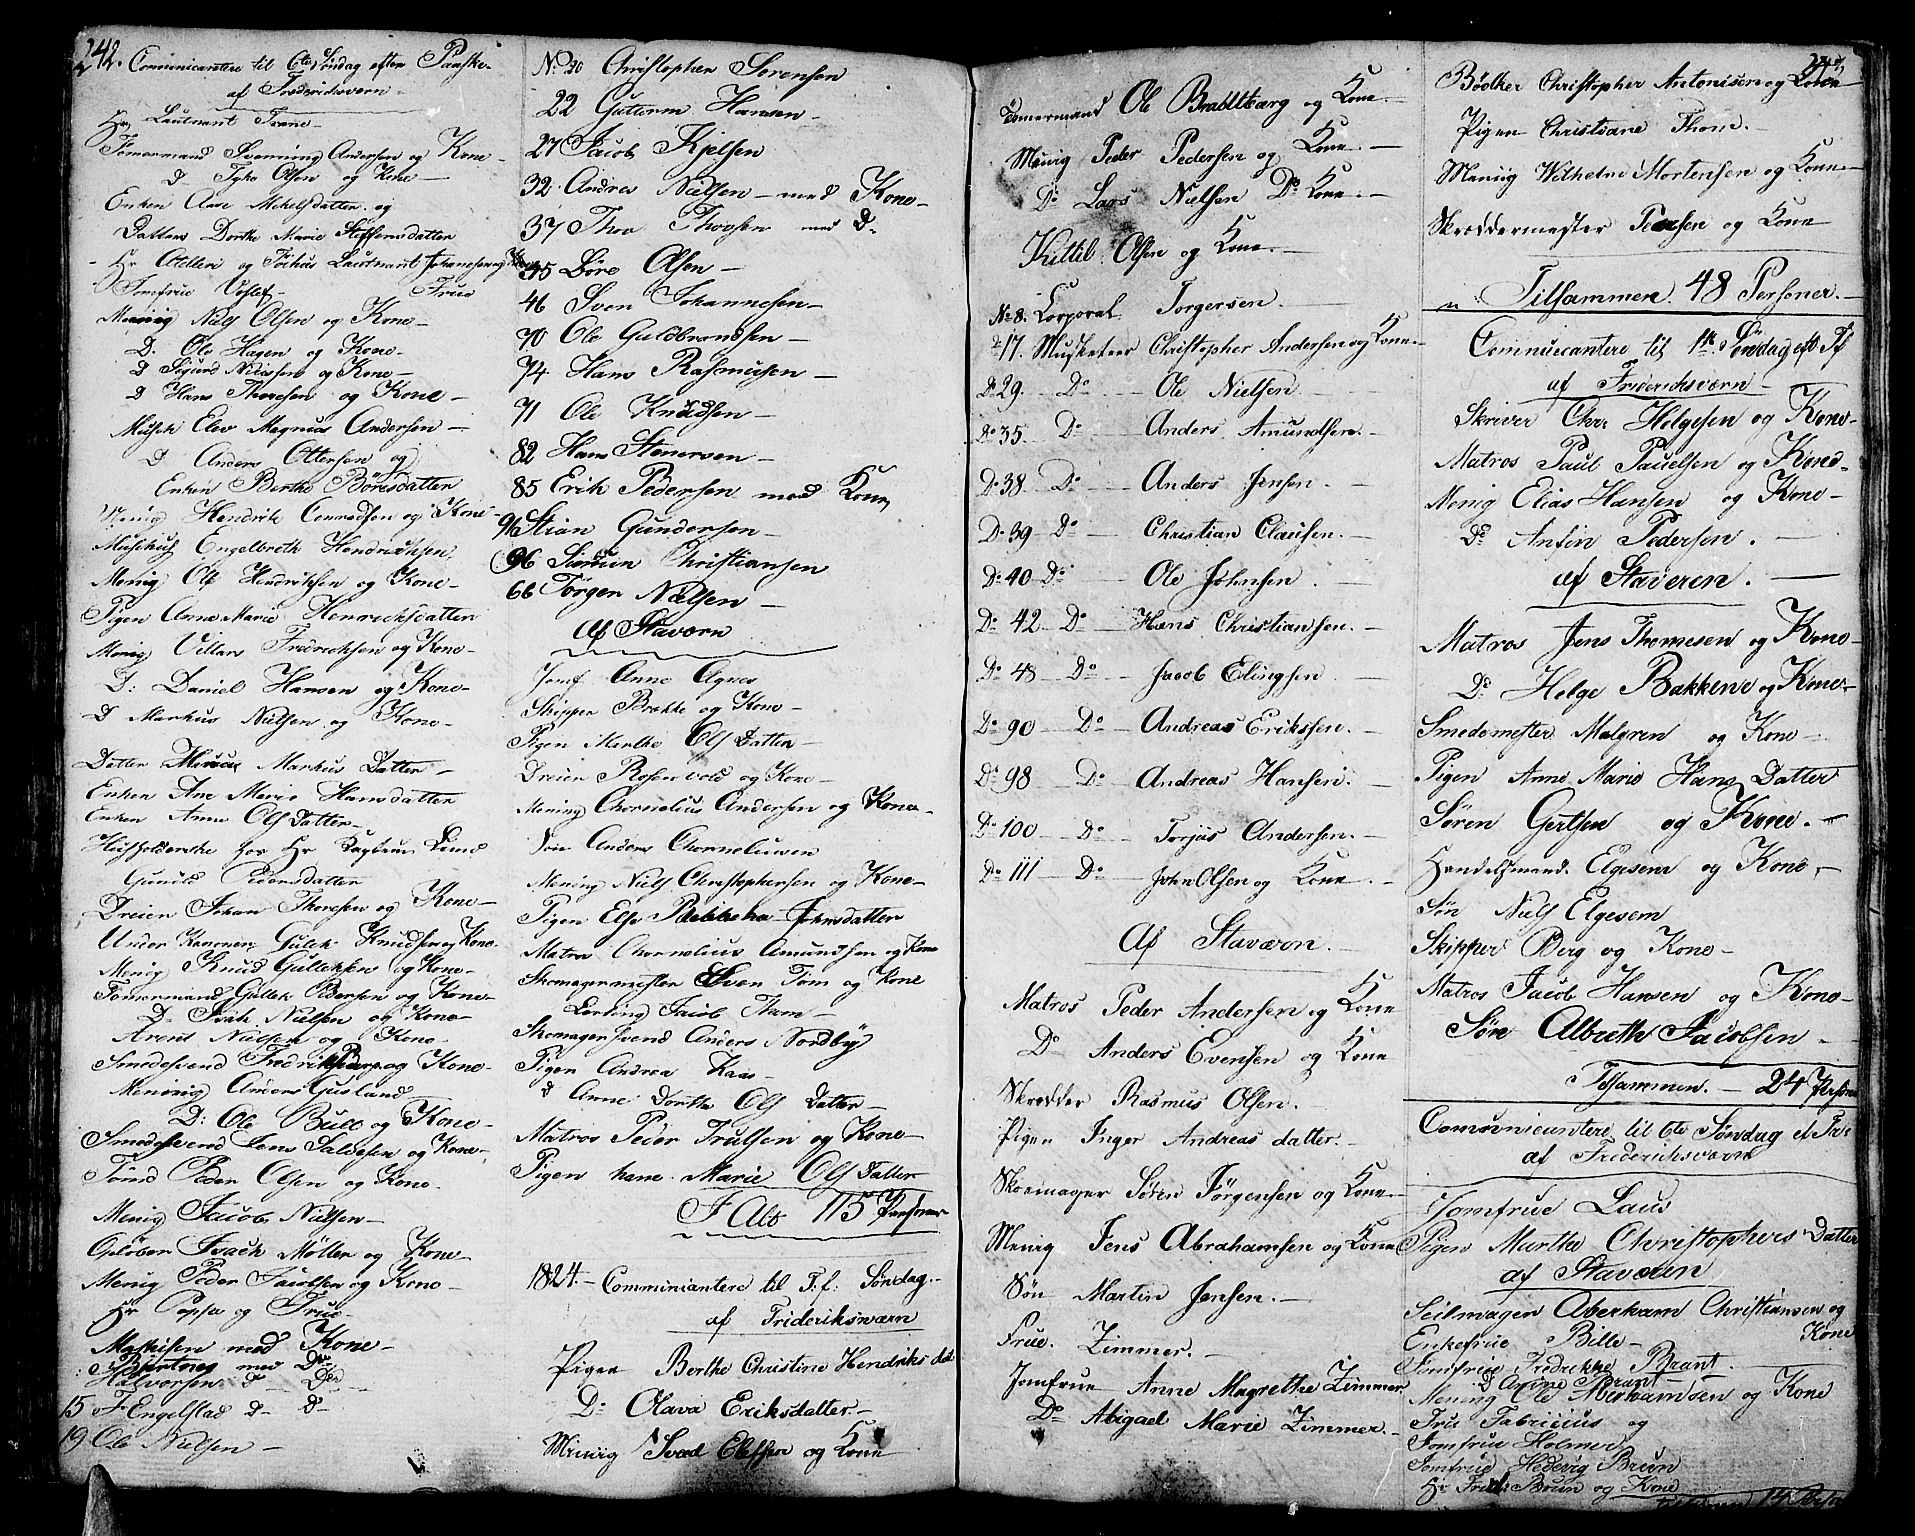 242.
Communicantere til 6te Søndag efter Paaske
af Frederiksværn
Hr. Lautnant Trane
Tömermand Svenning Andersen og Kone
D Tyko Olsen og Kone
Enken Aase Mikelsdatter og
Datters Dorthe Marie Steffensdatter
Hr Atelleri og Lautnant Johannesen og
Jomfrue Frue
Menig Niels Olsen og Kone
D. Ole Hagen og Kone
D Sigurd Nilssen og Kone
D Hans Thoresen og Kone
Musik Elev Magnus Andersen
D Anders Ottersen og
Enken Berthe Böresdatter
Menig Hendrik Conradsen og Kone
Engelbreth Hendriksen
Menig Ole Hendriksen og Kone
Pigen Anne Marie Henrichsdatter
Menig Villars Fredricksen og Kone
D: Daniel Hansen og Kone
D Markus Nielsen og Kone
Datter Markus Datter
Enken Ane Marie Hansdatter
Enken Anne Ols Datter
Huusholderske hos Hr Lund
Gunild Pedersdatter
Dreier Johan Thoresen og Kone
Under Kanoneer Gulek Knudsen og Kone
Menig Knud Gulleksen og Kone
Tömermand Gullek Pedersen og Kone
D Isak Nielsen og Kone
Arent Nielsen og Kone
Smedesvend Fredrik og Kone
Mening Anders Gusland
D: Ole Bull og Kone
Smedesvend Jens Saldesen og Kone
Tömd Peder Olsen og Kone
Menig Jacob Nielsen
Opløber Isach Møller og Kone
Menig Peder Jacobsen og Kone
Hr Poppe og Frue
Mathisen med Kone
Berntsen med Do
Halvorsen D
15 F Engelstad D D
19 Ole Nielsen
No 20 Christopher Sorensen
22 Guttorm Hansen
27 Jacob Kjelsen
32 Andres Nielsen med Kone
37 Thor Thorsen med D
45 Böre Olsen
46 Sven Johannesen
70 Ole Guldbrandsen
74 Hans Rasmusen
71 Ole Knudsen
82 Hans Stenersen
85 Erik Pedersen med Kone
96 Stian Gundersen
96 Simon Christiansen
66 Törgen Nielsen
Af Staværn
Jomf Anne Agnes
Skipper Brække og Kone
Pigen Marthe Ols Datter
Dreier Rosenvold og Kone
Mening Chornelius Andersen og Kone
Søn Anders Chorneliusen
Mening Niels Christophersen og Kone
Pigen Else Rebbekha Johnsdatter
Matros Chornelius Amundsen og Kone
Skomagermester Sven Tom og Kone
Lerling Jacob Tham
Skomagersvend Anders Nordby
Pigen Andrea Kaas
d Anne Dorthe Ols Datter
Matros Peder Trulsen og Kone
Pigen hane Marie Ols datter
I Alt 115 Personer
1824. Comminiantere til T.f. Søndag
af Frideriksværn
Pigen Berthe Christine Hendriks dat
Do Olava Eriksdatter
Menig Olessen og Kone
Tömermand Ole Bradltberg og Kone
Menig Peder Pedersen og Kone
Do Lars Nielsen Do Kone
Kittil Olsen og Kone
No 8. Corporal Torgersen
17. Musketeer Christopher Andersen og Kone
Do 29. Do Ole Nielsen
Do 35. Do Anders Amundsen
Do 38. Do Anders Jensen
Do 39 Do Christian Clausen
Do 40 Do Ole Johnsen
Do 42 Do Hans Christiansen
Do 48 Do Jacob Elingsen
Do 90 Do Andreas Erikssen
Do 98 Do Andreas Hansen
Do 100 Do Torjus Andersen
Do 111 Do John Olsen og Kone
Af Staværn
Matros Peder Andersen og Kone
Do Anders Evensen og Kone
Skrædder Rasmus Olsen
Pigen Inger Andreas datter
Skoemager Sören Jörgensen og Kone
Menig Jens Abrahamsen og Kone
Søn Martin Jensen
Frue. Zimmer
Jomfrue Anne Magrethe Zimmer
Do Abigael Marie Zimmer
243
Bödker Christopher Antonisen og Kone
Pigen Christiane Thom
Menig Wilhelm Mortensen og Kone
Skræddermester Pedersen og Kone
Tilsammen 48 Personer
Communicantere til 1te Søndag eft Tf
af Frideriksværn
Skriver Chr. Helgesen og Kone
Matros Paul Pauelsen og Kone
Menig Elias Hansen og Kone
Do Anfin Pedersen
af Staveren
Matros Jens Thomesen og Kone
Do Helge Bakkene og Kone
Smedemester Malgren og Kone
Pigen Anne Marie Hans Datter
Søren Gertsen og Kone
Handelsmand Elgesem og Kone
Søn Niels Elgesem
Skipper Berg og Kone
Matros Jacob Hansen og Kone
Søn Albreth Jacobsen
Tilsammen 24 Persone
Communicantere til 6te Søndag ef Tr:
af Frideriksværn
Jomfrue Laus
Pigen Marthe Christophers Datter
af Staværn
Seilmager Aberham Christiansen og
Kone
Enkefrue Bille
Jomfrue Fredrikke Brant
D Arine Brant
Mening Ole Aberhamsen og Kone
Fru Fabricius og
Jomfrue Holmer
Jomfrue Hedevig Brun
Hr Frid: Brun og Kone
14 Perso